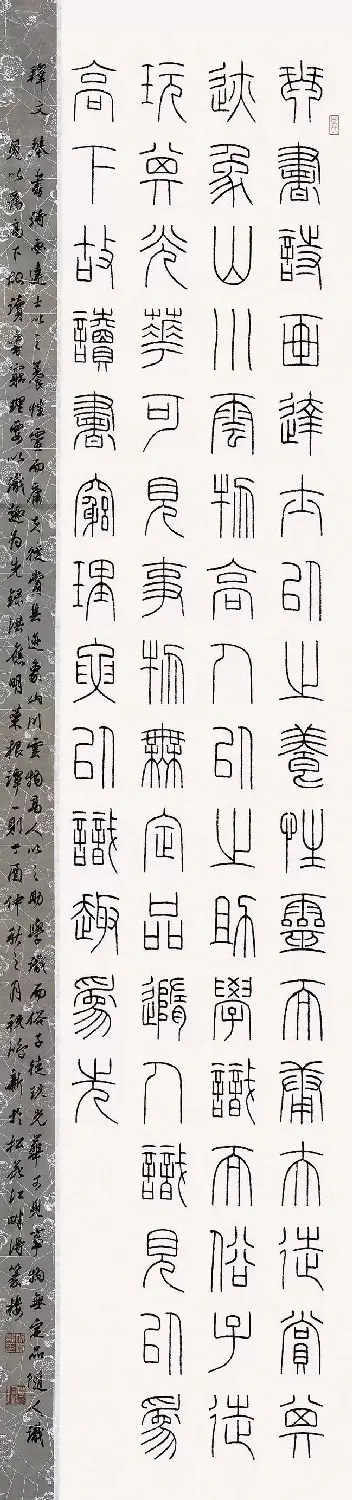 琴書詩画達士以之養性靈而庸夫徒賞其
迹象山川雲物高人以之助學識而俗子徒
玩其光華可見事物無定品隨人識見以為
高下故讀書窮理要以識趣為先
釋文 琴書詩畫達士以之養性靈而庸夫徒賞其迹象山川雲物高人以之助學識而俗子徒玩光華可見事物無定品隨人識
見以為高下故讀書窮理要以識趣為先 錄洪應明菜根譚一則丁酉仲秋之月祝新於松花江畔篆樓